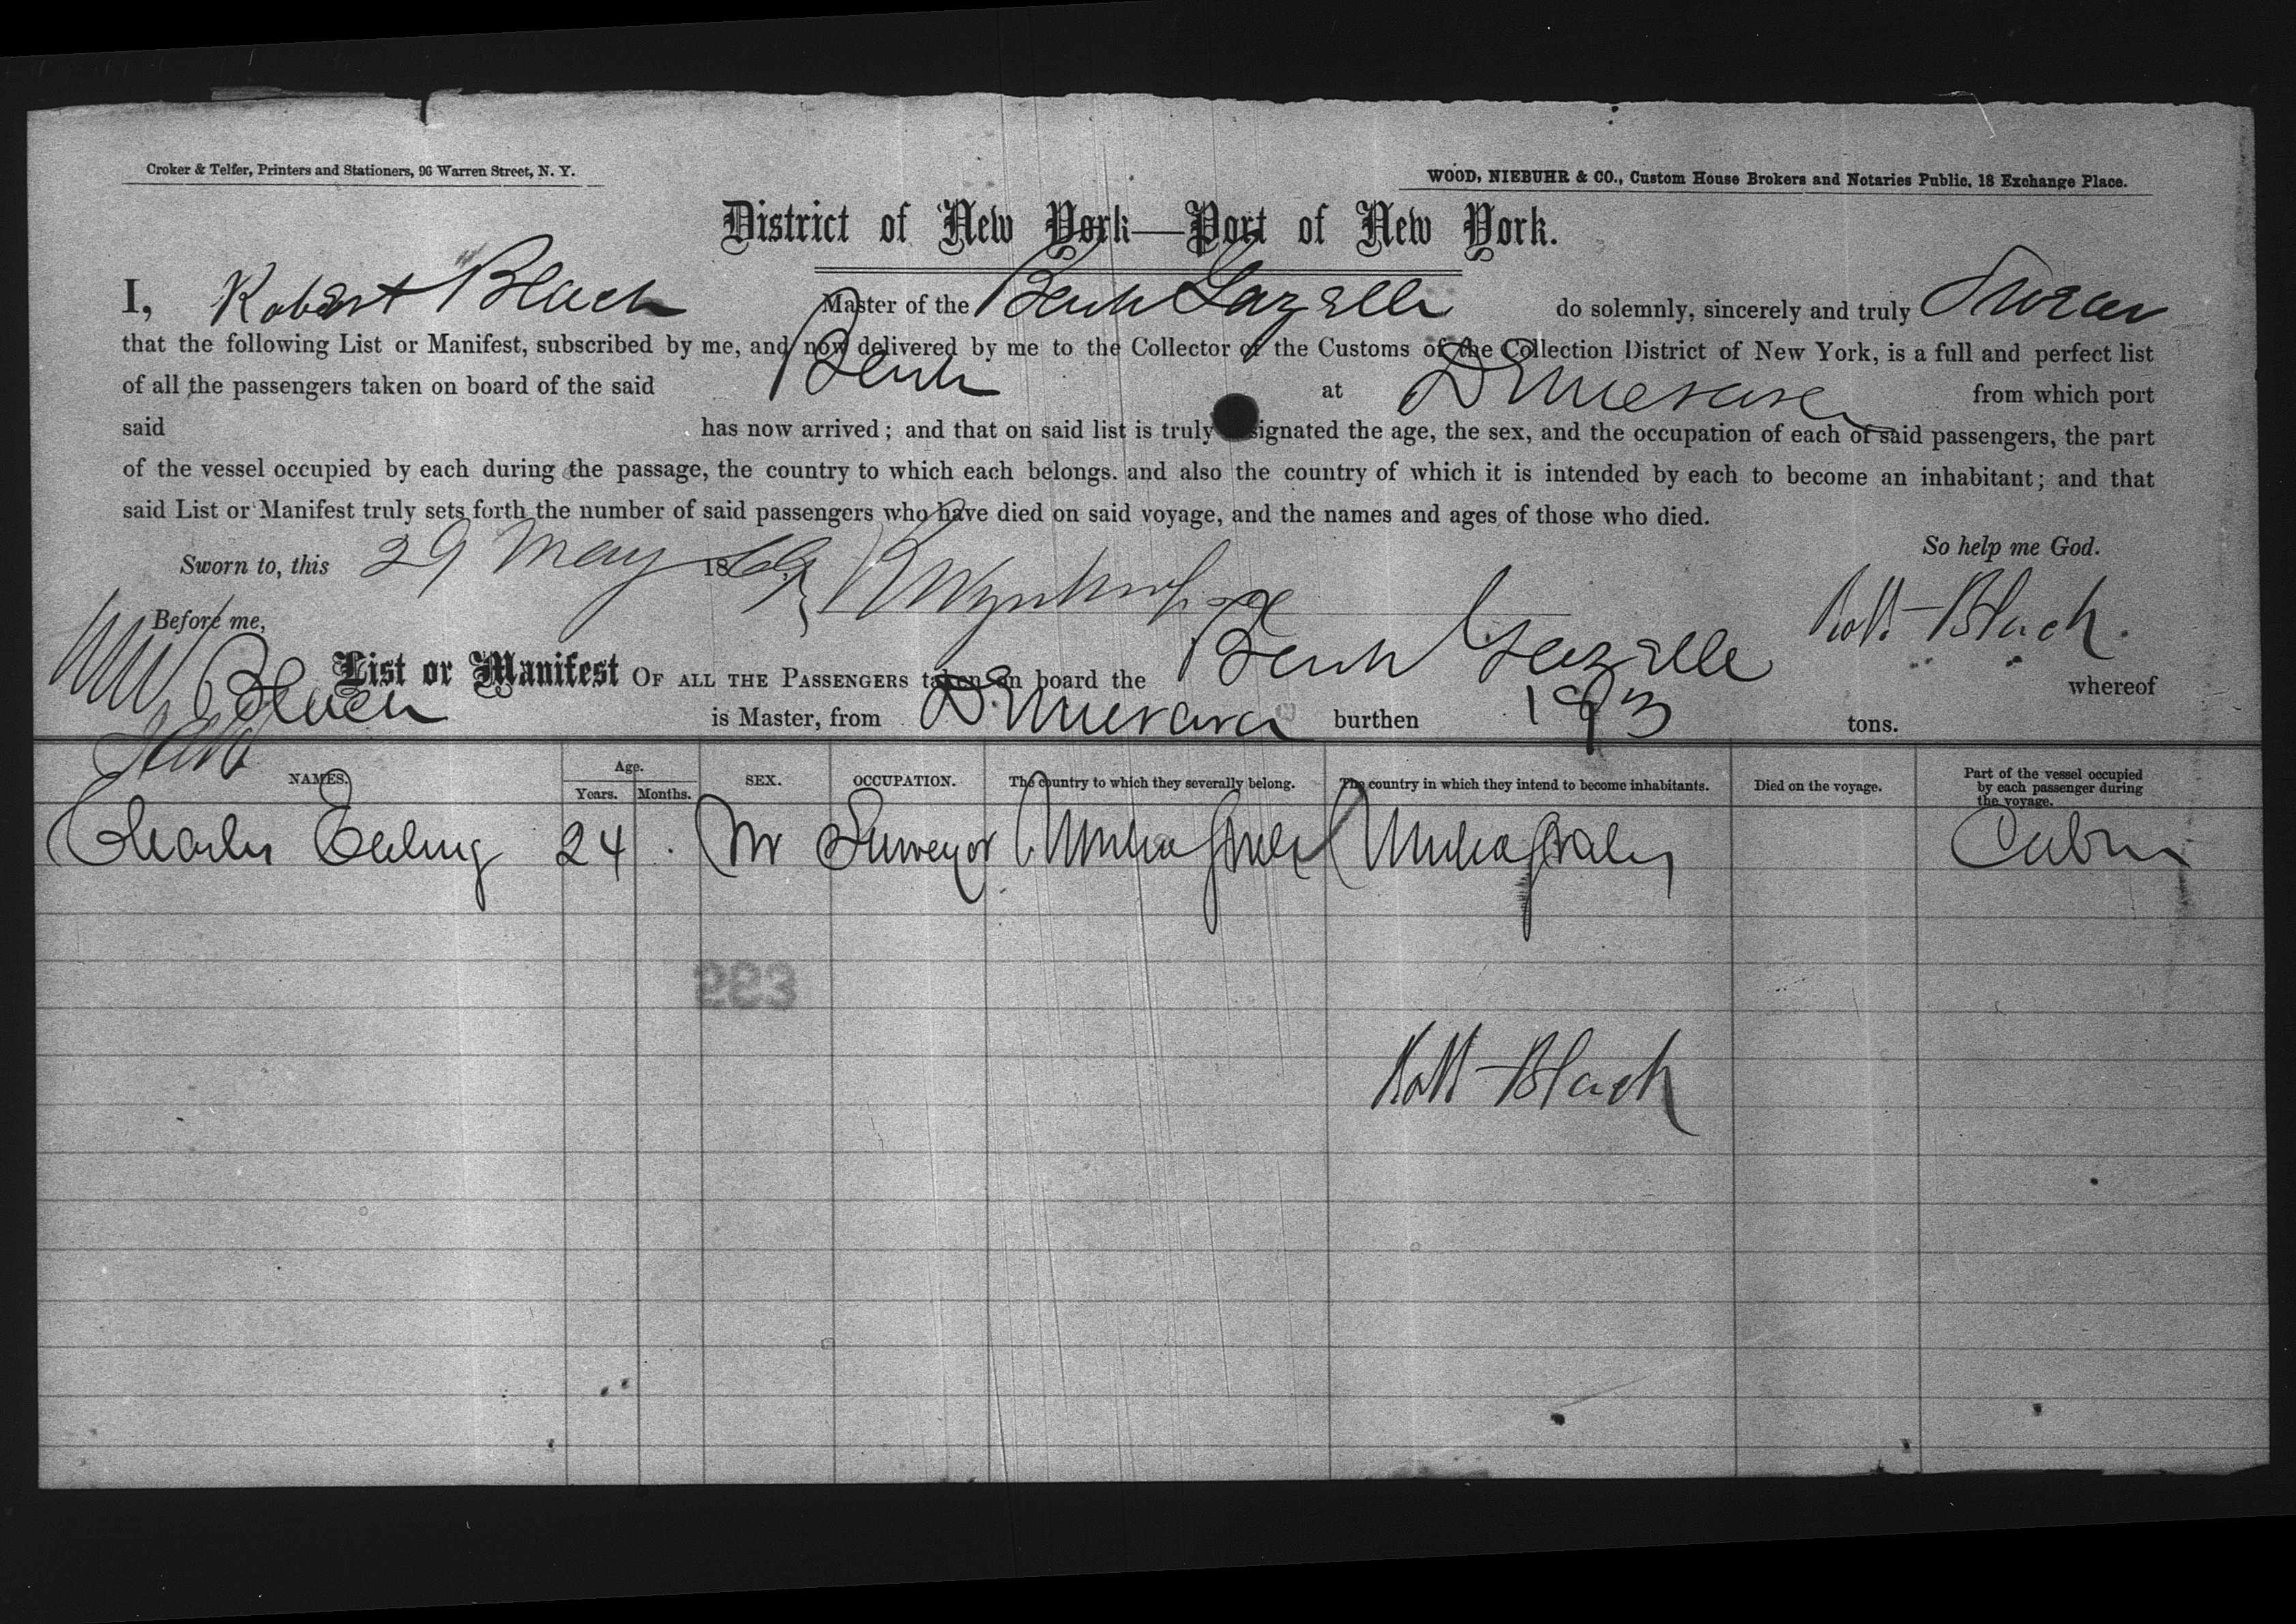 Croker & Telfer, Printers and Stationers, 96 Warren Street, N. Y.
WOOD, NIEBUHR & CO., Custom House Brokers and Notaries Public, 18 Exchange Place.
District of New York—Port of New York.
I, Robert Black Master of the Gazelle do solemnly, sincerely and truly Swear
that the following List or Manifest, subscribed by me, and now delivered by me to the Collector of the Customs of the Collection District of New York, is a full and perfect list
of all the passengers taken on board of the said at Demerara from which port
said has now arrived; and that on said list is truly designated the age, the sex, and the occupation of each of said passengers, the part
of the vessel occupied by each during the passage, the country to which each belongs. and also the country of which it is intended by each to become an inhabitant; and that
said List or Manifest truly sets forth the number of said passengers who have died on said voyage, and the names and ages of those who died.
So help me God.
Sworn to, this 29 May 1869
Robt Black
Before me,
List or Manifest OF ALL THE PASSENGERS taken on board the Gazelle whereof
Black is Master, from Demerara burthen 193 tons.
NAMES. Age. Years. Months. SEX. OCCUPATION. The country to which they severally belong. The country in which they intend to become inhabitants. Died on the voyage. Part of the vessel occupied by each passenger during the voyage.
Charles 24 M Surveyor United States United States Cabin
283
Robt Black